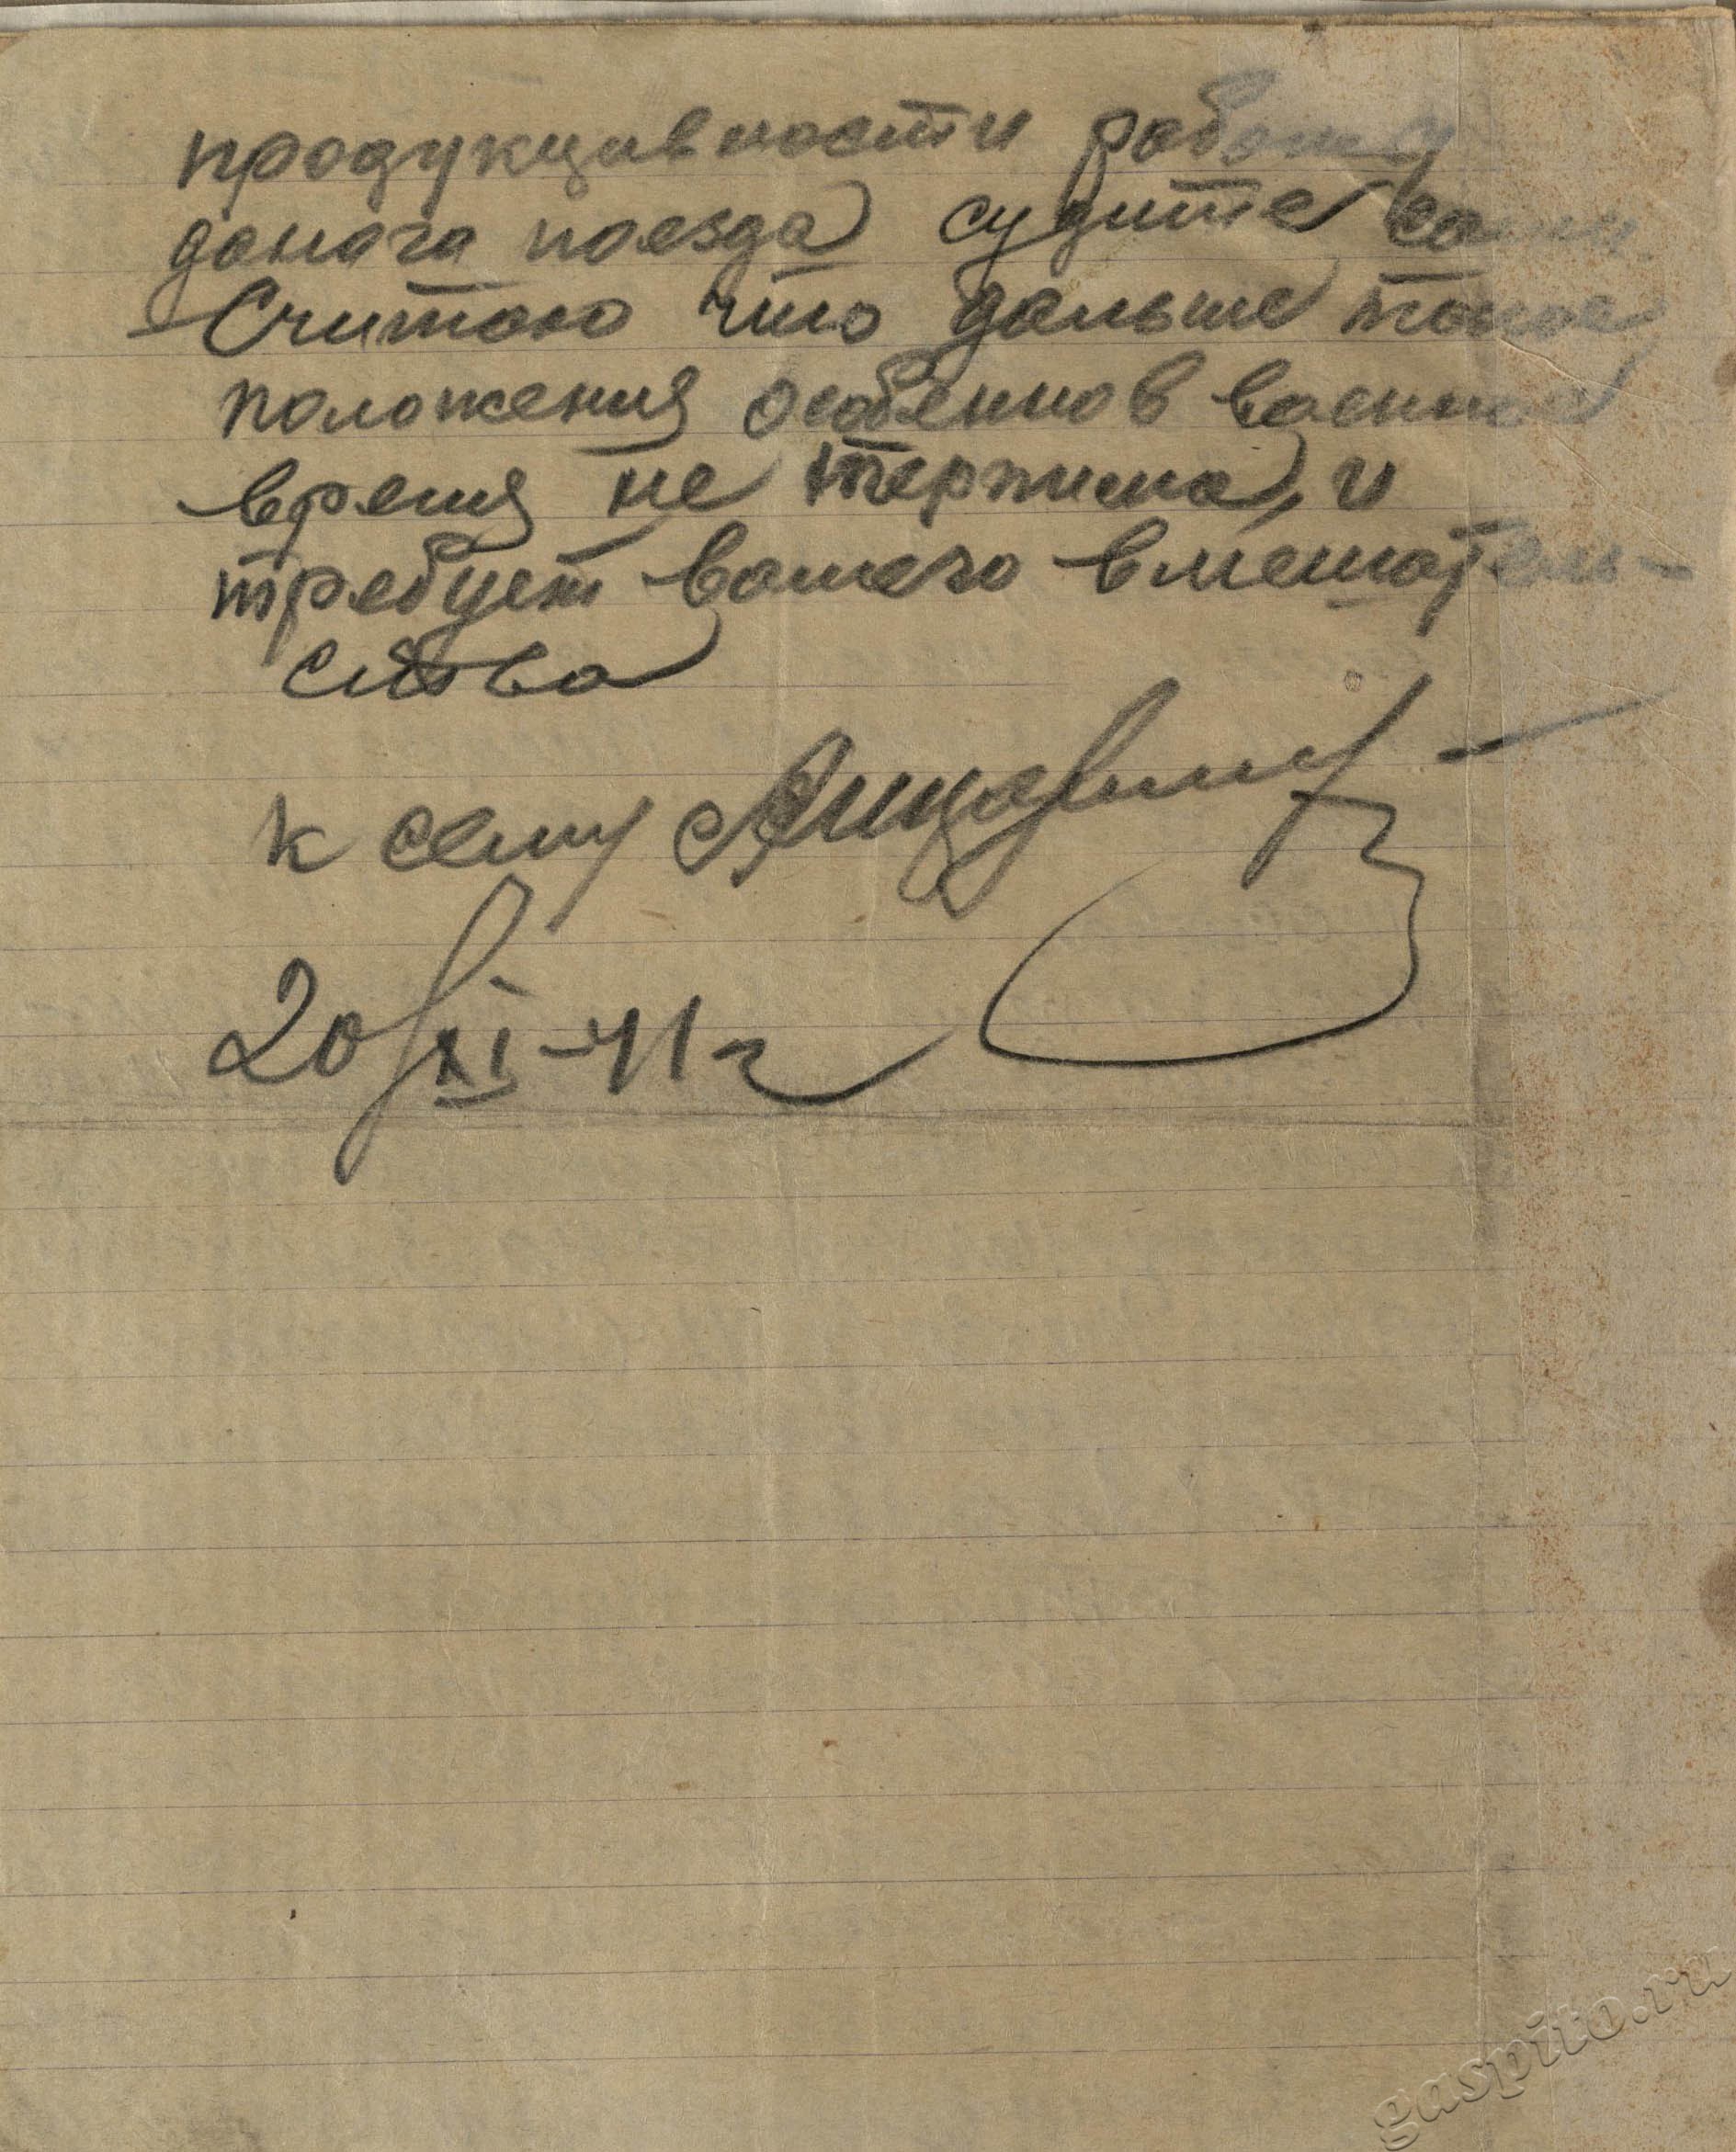 продукцивности работы
данага поезда судите сами
Считаю что дальше такое
положения особенно в военное
время не терпима, и
требует вашего вмешатель-
ства
к сему
20/XI-41 г
gaspito.ru